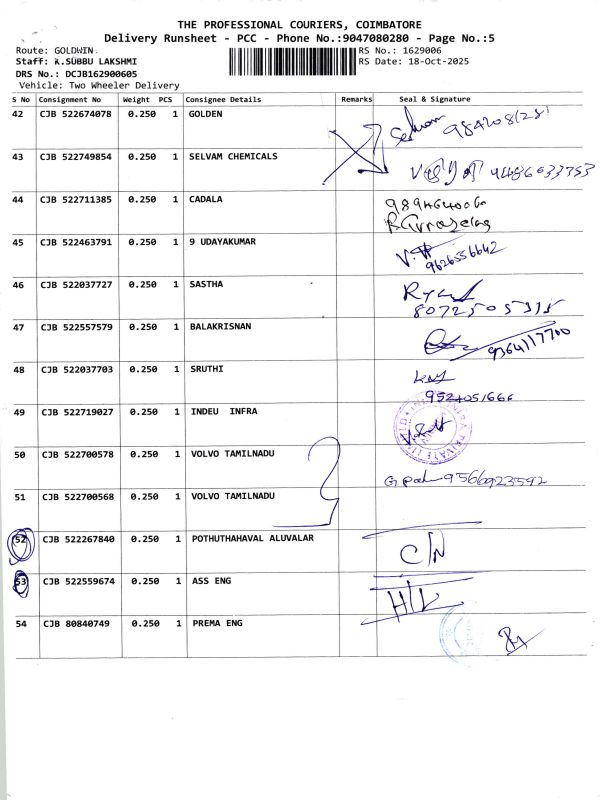 THE PROFESSIONAL COURIERS, COIMBATORE
Delivery Runsheet - PCC - Phone No.:9047080280 - Page No.:5
Route: GOLDWIN RS No.: 1629006
Staff: K.SUBBU LAKSHMI RS Date: 18-Oct-2025
DRS No.: DCJB162900605
Vehicle: Two Wheeler Delivery
S No Consignment No Weight PCS Consignee Details Remarks Seal & Signature
42 CJB 522674078 0.250 1 GOLDEN Selvam
43 CJB 522749854 0.250 1 SELVAM CHEMICALS
44 CJB 522711385 0.250 1 CADALA
45 CJB 522463791 0.250 1 9 UDAYAKUMAR 9626556642
46 CJB 522037727 0.250 1 SASTHA
47 CJB 522557579 0.250 1 BALAKRISNAN 9364117700
48 CJB 522037703 0.250 1 SRUTHI
9524051666
49 CJB 522719027 0.250 1 INDEU INFRA
50 CJB 522700578 0.250 1 VOLVO TAMILNADU
9566923592
51 CJB 522700568 0.250 1 VOLVO TAMILNADU
52 CJB 522267840 0.250 1 POTHUTHAHAVAL ALUVALAR C/N
53 CJB 522559674 0.250 1 ASS ENG H/L
54 CJB 80840749 0.250 1 PREMA ENG